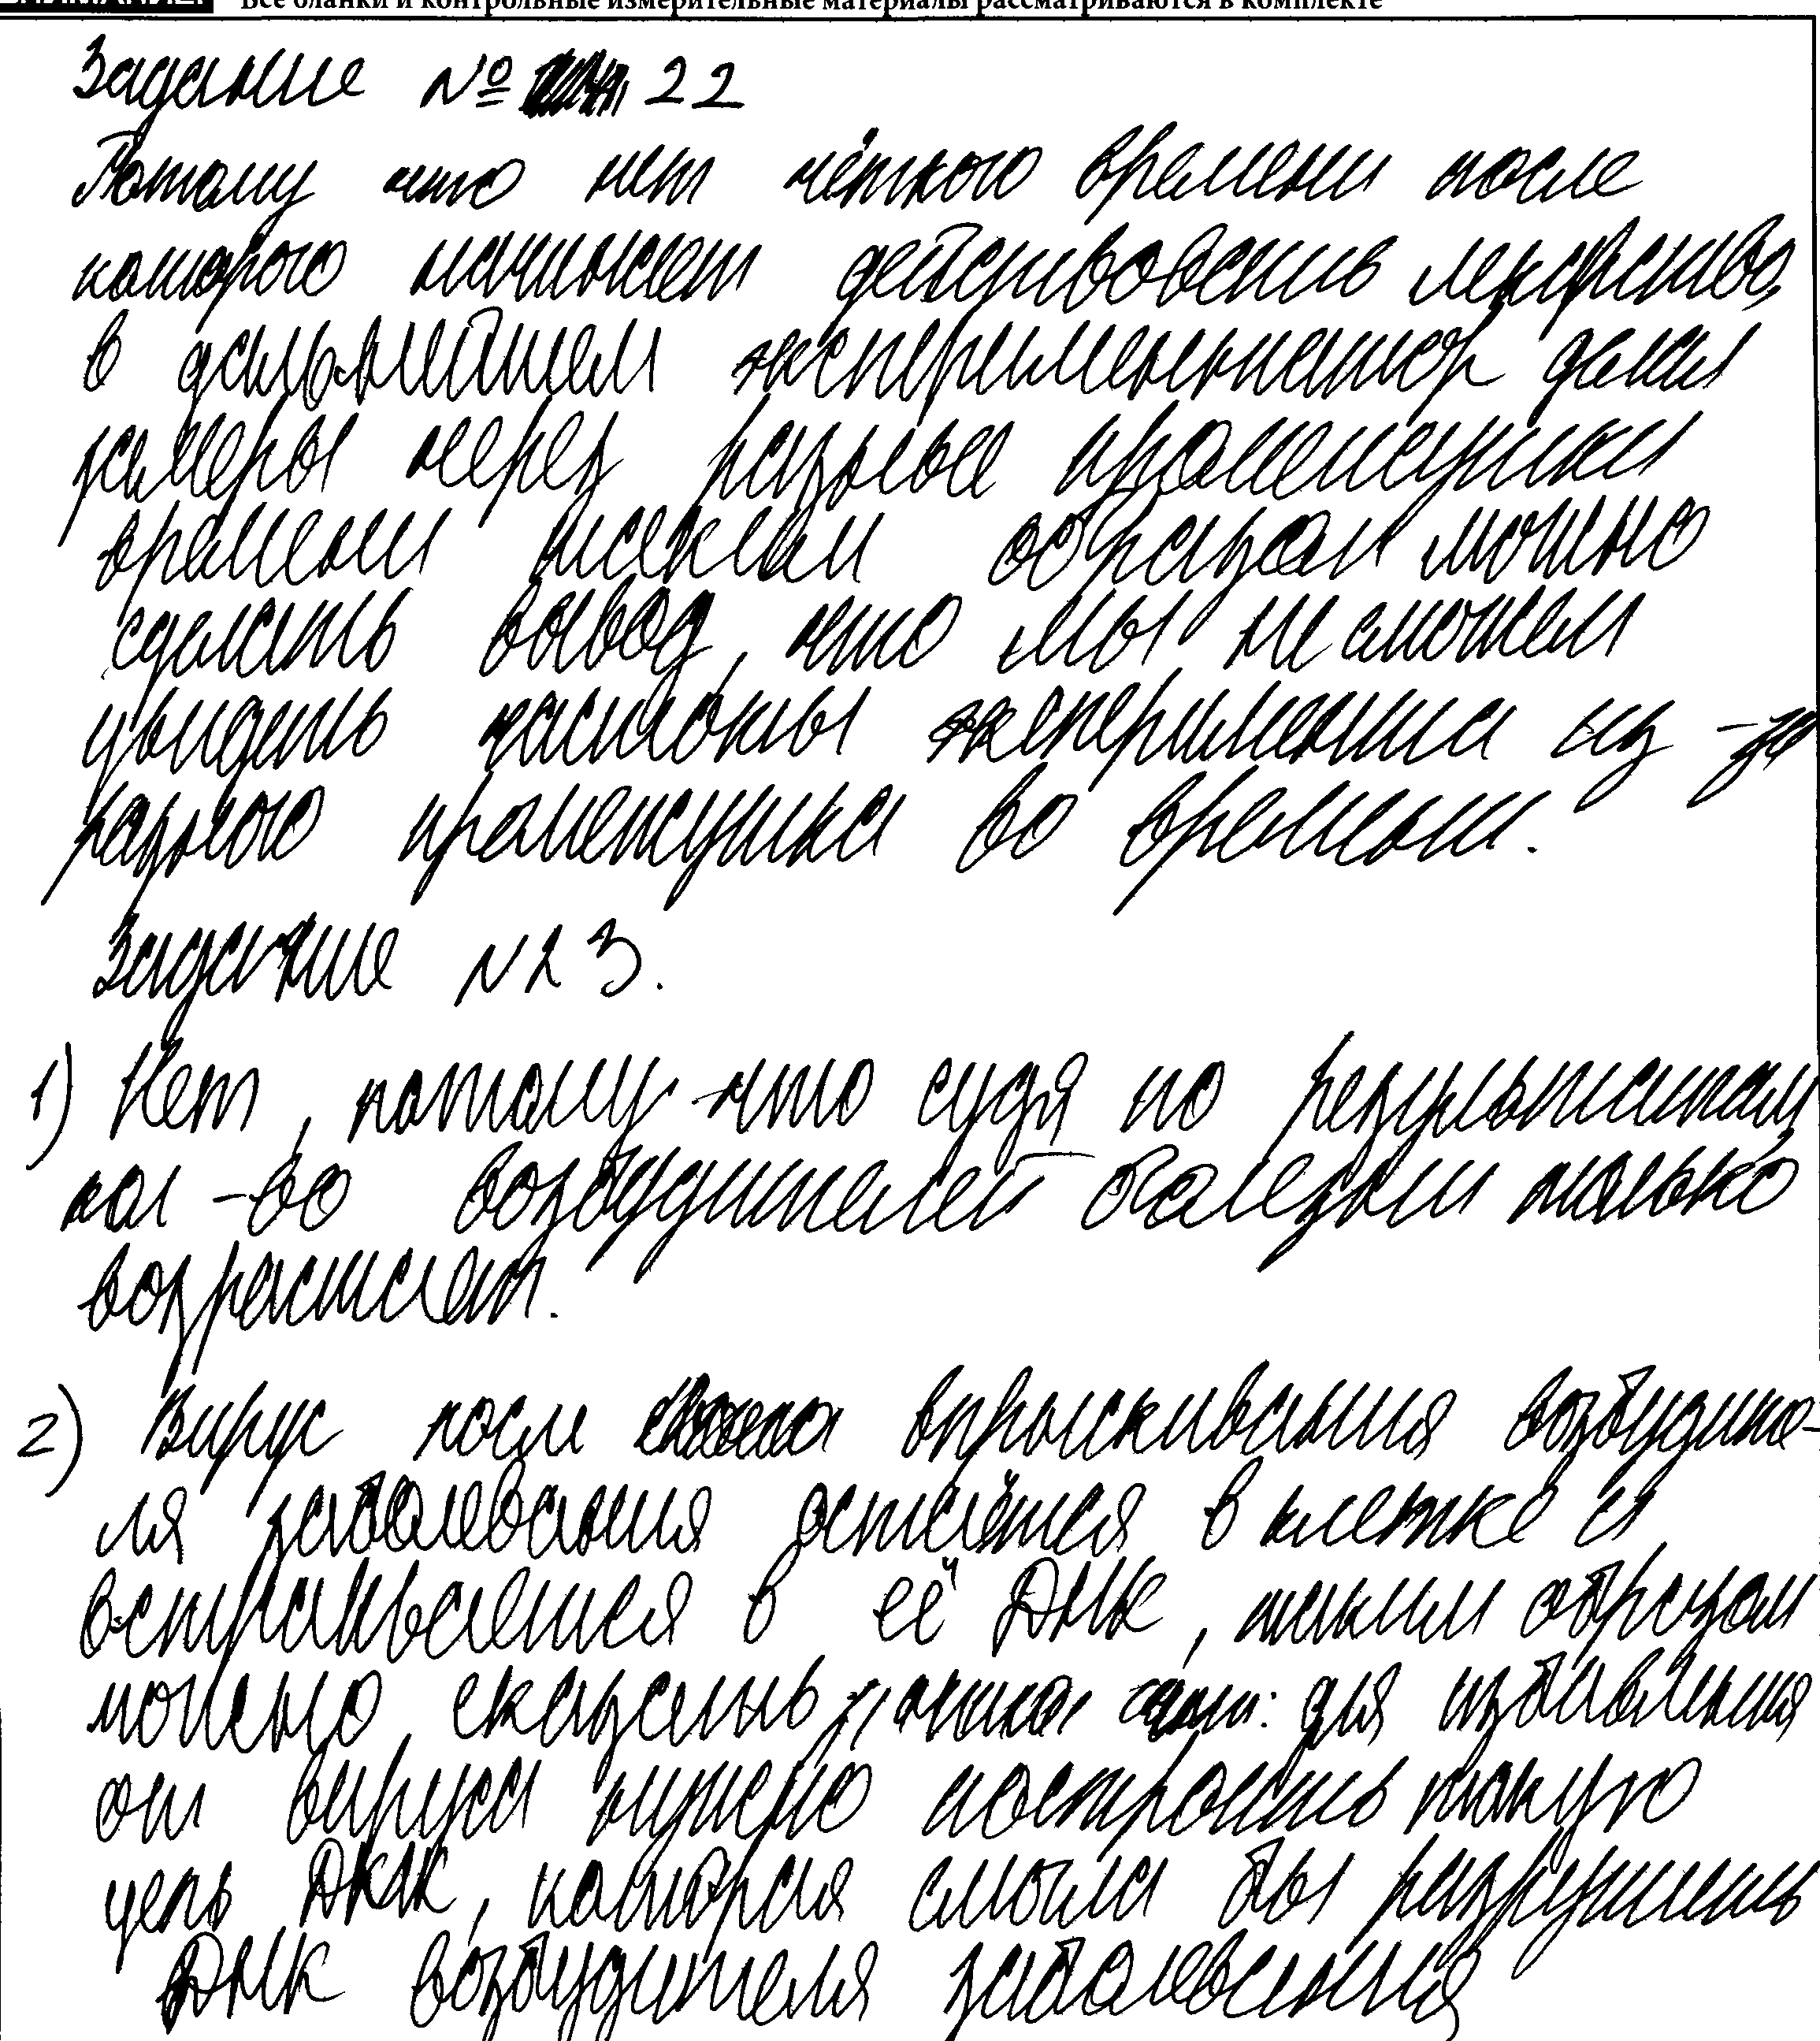 Все бланки и контрольные измерительные материалы рассматриваются в комплекте
Задание № 22
Потому что нет чёткого времени после
которого начинает действовать лекарство,
в дальнейшем экспериментатор делал
замеры через разные промежутки
времени таким образом можно
сделать вывод, что мы не сможем
увидеть чистоты эксперимента из-за
разного промежутка во времени.
Задание №23.
1) Нет, потому-что судя по результатам,
кол-во возбудителей болезни только
возрастает.
2) Вирус после впрыскивания возбудите-
ля заболевания остаётся в клетке и
встраивается в её ДНК, таким образом
можно сказать, для избавления
от вируса нужно построить такую
цепь ДНК, которая смогла бы разрушить
ДНК возбудителя заболевания